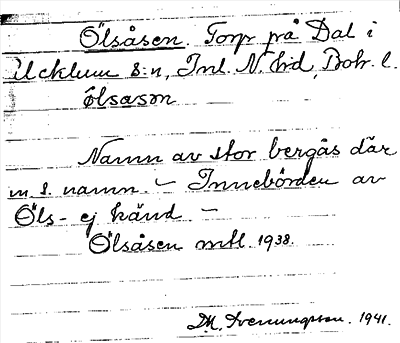 Ölsåsen. Torp på Dal i
Ucklum s:n, Inl. N. hd, Boh. l.
ölsåsən
Namn av stor bergås där
m. s. namn. – Innebörden av
Öls- ej känd –
Ölsåsen mtl. 1938.
M. Svenungsson. 1941.